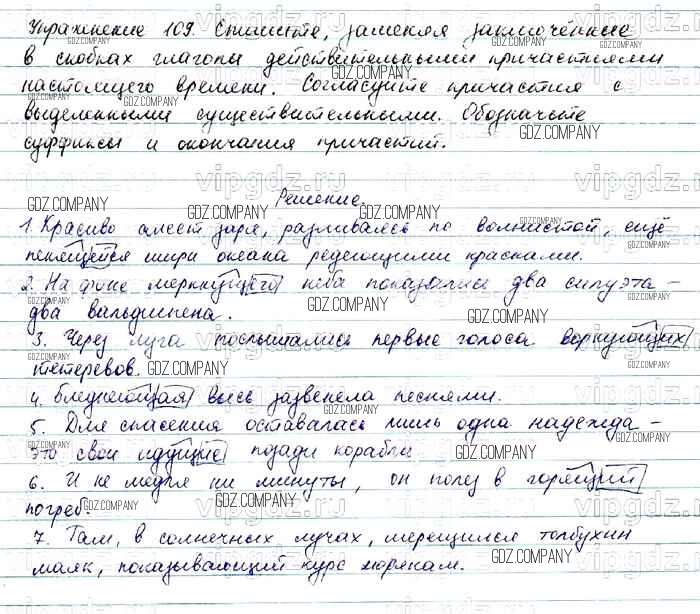 Упражнение 109. Спишите, заменяя заключённые
в скобках глаголы действительными причастиями
настоящего времени. Согласуйте причастия с
выделенными существительными. Обозначьте
суффиксы и окончания причастий.
Решение.
1. Красиво алеет заря, разливаясь по волнистой, ещё
пенящейся шири океана редеющими красками.
2. На фоне меркнущего неба показались два силуэта –
два вальдшнепа.
3. Через луга послышались первые голоса воркующих
тетеревов.
4. Бледнеющая высь зазвенела песнями.
5. Для спасения оставалась лишь одна надежда –
это свои идущие позади корабли
6. И не медля ни минуты, он полез в горящий
погреб.
7. Там, в солнечных лучах, мерещился толбухин
маяк, показывающий курс морякам.
GDZ.COMPANY
vipgdz.ru